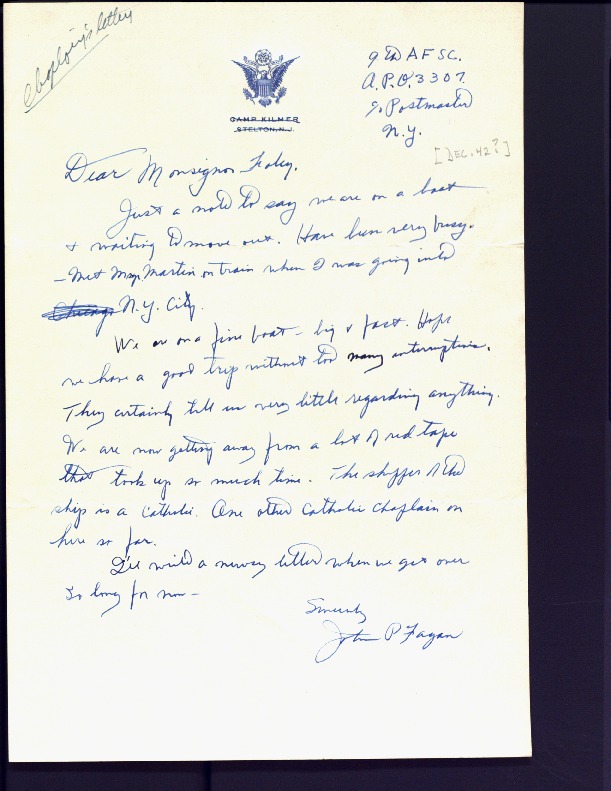 Chaplain's letter
CAMP KILMER
STELTON, N.J.
9th AFSC.
A.P.O. 3307
c/o Postmaster
N.Y.
[DEC. 42?]
Dear Monsignor Foley,
Just a note to say we are on a boat
& waiting to move out. Have been very busy.
- Met Msgr. Martin on train when I was going into
Chicago N.Y. City.
We are on a fine boat - big & fast. Hope
we have a good trip without too many interruptions.
They certainly tell us very little regarding anything.
We are now getting away from a lot of red tape
that took up so much time. The skipper of the
ship is a Catholic. One other Catholic Chaplain on
here so far.
I'll write a newsy letter when we get over
So long for now -
Sincerely
John P Fagan